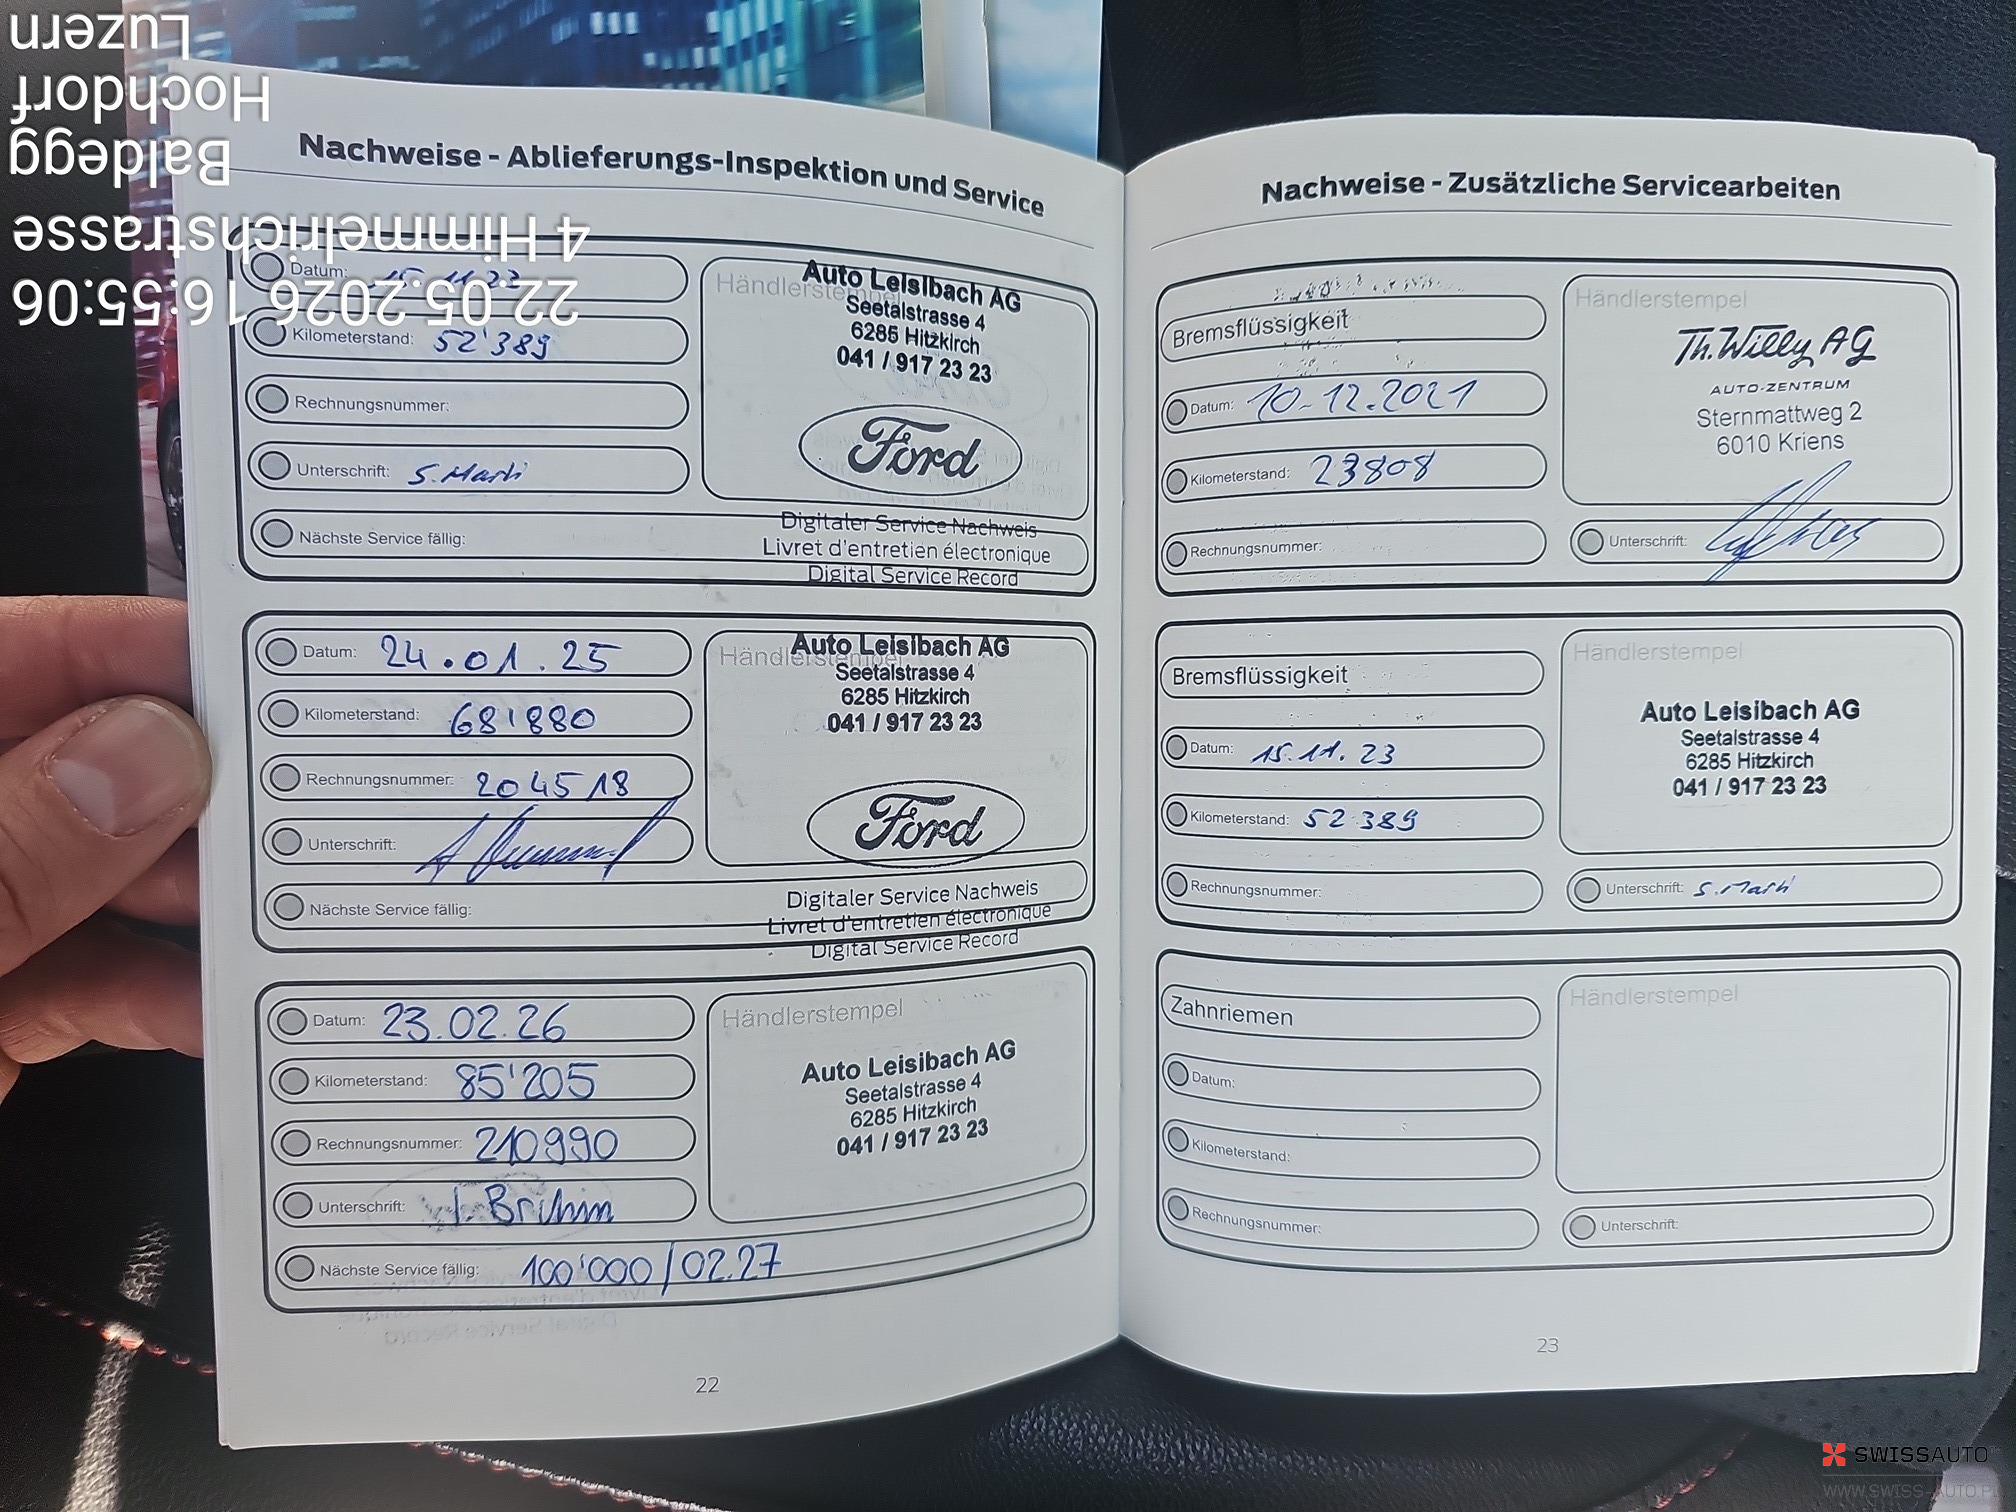 22.05.2026 16:55:06
4 Himmelrichstrasse
Baldegg
Hochdorf
Luzern
Nachweise - Ablieferungs-Inspektion und Service
Datum: 15.11.23
Kilometerstand: 52'389
Rechnungsnummer:
Unterschrift: S. Marti
Nächste Service fällig:
Händlerstempel
Auto Leisibach AG
Seetalstrasse 4
6285 Hitzkirch
041 / 917 23 23
Ford
Digitaler Service Nachweis
Livret d'entretien électronique
Digital Service Record
Datum: 24.01.25
Kilometerstand: 68'880
Rechnungsnummer: 204518
Unterschrift:
Nächste Service fällig:
Händlerstempel
Auto Leisibach AG
Seetalstrasse 4
6285 Hitzkirch
041 / 917 23 23
Ford
Digitaler Service Nachweis
Livret d'entretien électronique
Digital Service Record
Datum: 23.02.26
Kilometerstand: 85'205
Rechnungsnummer: 210990
Unterschrift:
Nächste Service fällig: 100'000/02.27
Händlerstempel
Auto Leisibach AG
Seetalstrasse 4
6285 Hitzkirch
041 / 917 23 23
22
Nachweise - Zusätzliche Servicearbeiten
Bremsflüssigkeit
Datum: 10.12.2021
Kilometerstand: 23808
Rechnungsnummer:
Händlerstempel
Th. Willy AG
AUTO-ZENTRUM
Sternmattweg 2
6010 Kriens
Unterschrift:
Bremsflüssigkeit
Datum: 15.11.23
Kilometerstand: 52'389
Rechnungsnummer:
Händlerstempel
Auto Leisibach AG
Seetalstrasse 4
6285 Hitzkirch
041 / 917 23 23
Unterschrift: S. Marti
Zahnriemen
Datum:
Kilometerstand:
Rechnungsnummer:
Händlerstempel
Unterschrift:
23
SWISSAUTO
WWW.SWISS-AUTO.PL